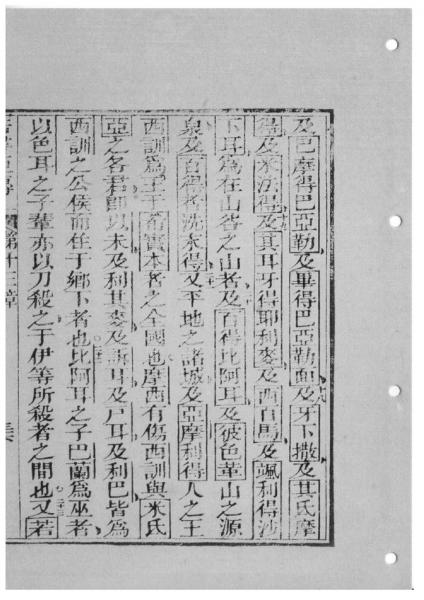 及巴摩得巴亞勒及畢得巴亞勒面及牙下撒及其氏摩
得及米法得及其耳牙得耶利麥及西百馬及颯利得沙
下耳為在山谷之山者及百得比阿耳及彼色革山之源
泉及百得者洗木得又平地之諸城及亞摩利得人之王
西訓為王于希實本者之全國也摩西有傷西訓與米氏
亞之各君即以未及利其麥及訴耳及戶耳及利巴皆為
西訓之公侯而住于鄉下者也比阿耳之子巴蘭為巫者
以色耳之子輩亦以刀殺之于伊等所殺者之間也又若
第十三章